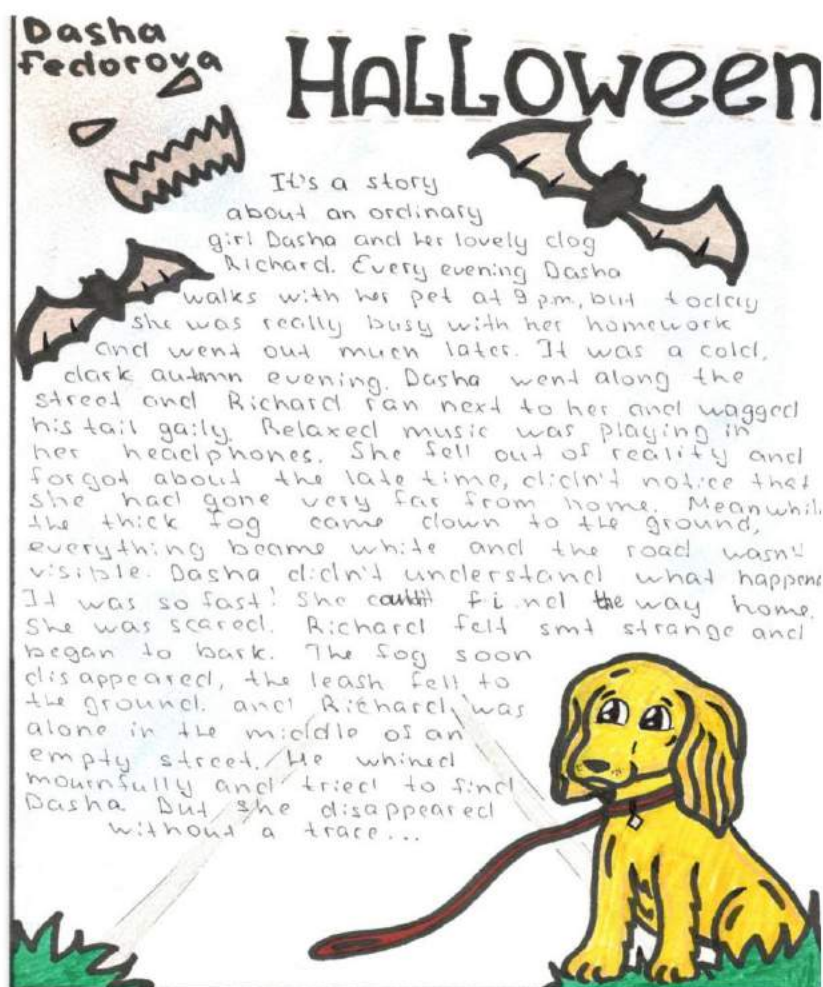 Dasha
Fedorova
HALLOWeen
It's a story
about an ordinary
girl Dasha and her lovely dog
Richard. Every evening Dasha
walks with her pet at 9 p.m., but today
she was really busy with her homework
and went out much later. It was a cold,
dark autmn evening. Dasha went along the
street and Richard ran next to her and wagged
his tail gaily. Relaxed music was playing in
her headphones. She fell out of reality and
forgot about the late time, didn't notice that
she had gone very far from home. Meanwhil
the thick fog came down to the ground,
everything became white and the road wasn't
visible. Dasha didn't understand what happene
It was so fast! She couldn't find the way home.
She was scared. Richard felt smt strange and
began to bark. The fog soon
disappeared, the leash fell to
the ground. and Richard was
alone in the middle of an
empty street. He whined
mournfully and tried to find
Dasha But she disappeared
without a trace...